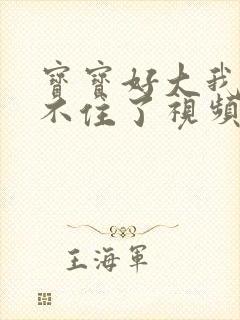 寶寶好大我
不住了視頻
王海軍